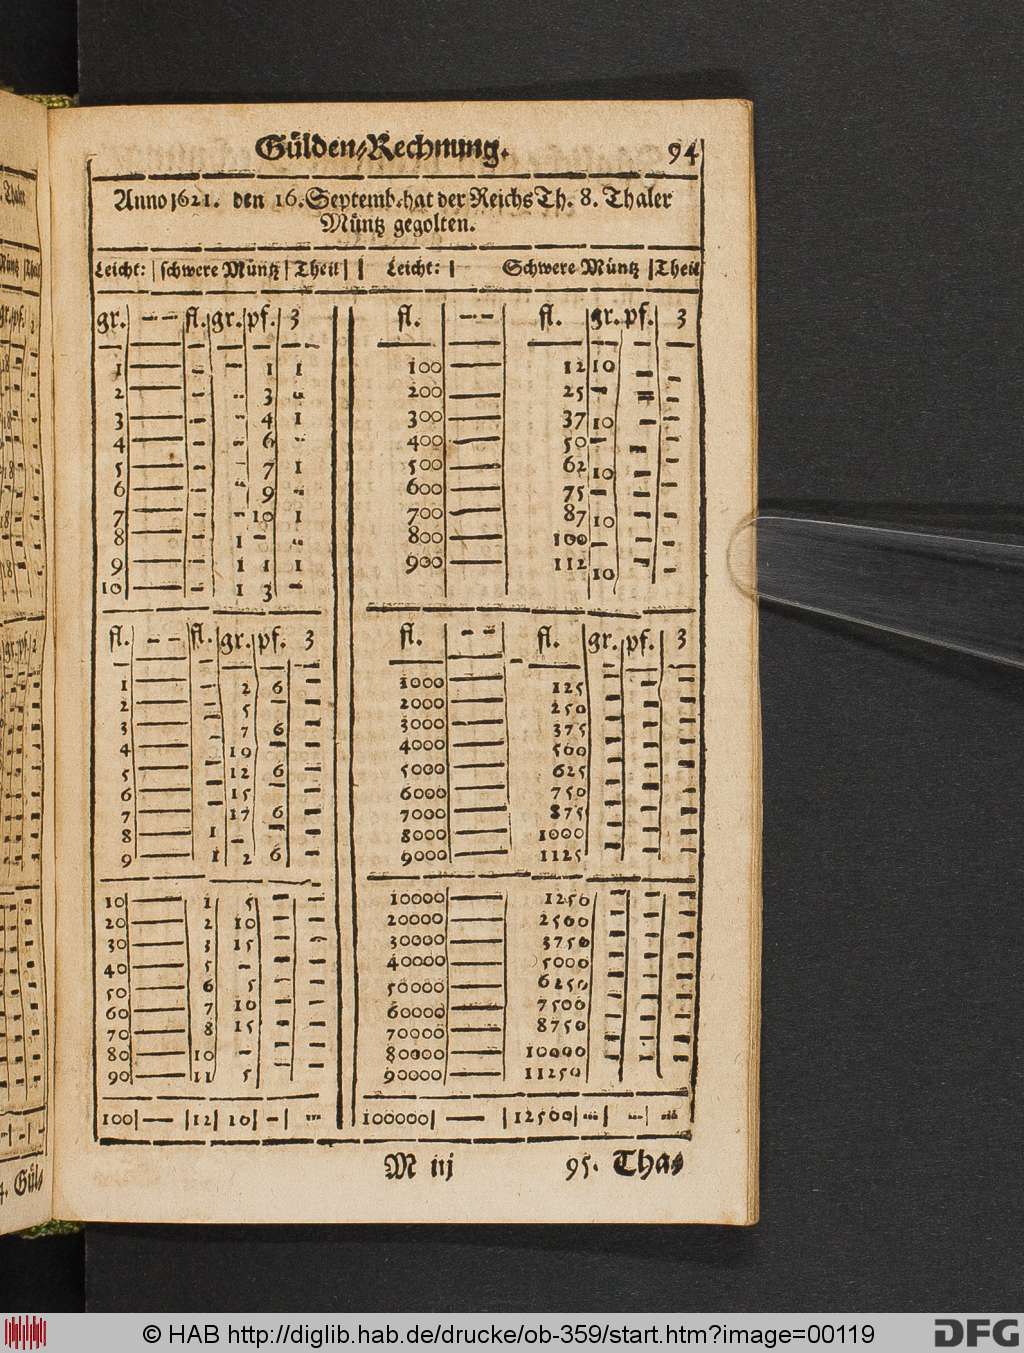 Gülden-Rechnung. 94
Anno 1621. den 16. Septemb. hat der Reichs Th. 8. Thaler
Müntz gegolten.
Leicht: | schwere Müntz | Theil | | Leicht: | Schwere Müntz | Theil
gr. – – fl. gr. pf. 3 fl. – – fl. gr. pf. 3
1 — – – 1 1 100 — 12 10 – –
2 — – – 3 – 200 — 25 – – –
3 — – – 4 1 300 — 37 10 – –
4 — – – 6 – 400 — 50 – – –
5 — – – 7 1 500 — 62 10 – –
6 — – – 9 – 600 — 75 – – –
7 — – – 10 1 700 — 87 10 – –
8 — – 1 – – 800 — 100 – – –
9 — – 1 1 1 900 — 112 10 – –
10 — – 1 3 –
fl. – – fl. gr. pf. 3 fl. – – fl. gr. pf. 3
1 — – 2 6 – 1000 — 125 – – –
2 — – 5 – – 2000 — 250 – – –
3 — – 7 6 – 3000 — 375 – – –
4 — – 10 – – 4000 — 500 – – –
5 — – 12 6 – 5000 — 625 – – –
6 — – 15 – – 6000 — 750 – – –
7 — – 17 6 – 7000 — 875 – – –
8 — 1 – – – 8000 — 1000 – – –
9 — 1 2 6 – 9000 — 1125 – – –
10 — 1 5 – – 10000 — 1250 – – –
20 — 2 10 – – 20000 — 2500 – – –
30 — 3 15 – – 30000 — 3750 – – –
40 — 5 – – – 40000 — 5000 – – –
50 — 6 5 – – 50000 — 6250 – – –
60 — 7 10 – – 60000 — 7500 – – –
70 — 8 15 – – 70000 — 8750 – – –
80 — 10 – – – 80000 — 10000 – – –
90 — 11 5 – – 90000 — 11250 – – –
100 | — | 12 | 10 | – | – 100000 | — | 12500 | – | – | –
M iij 95. Tha-
© HAB http://diglib.hab.de/drucke/ob-359/start.htm?image=00119
DFG